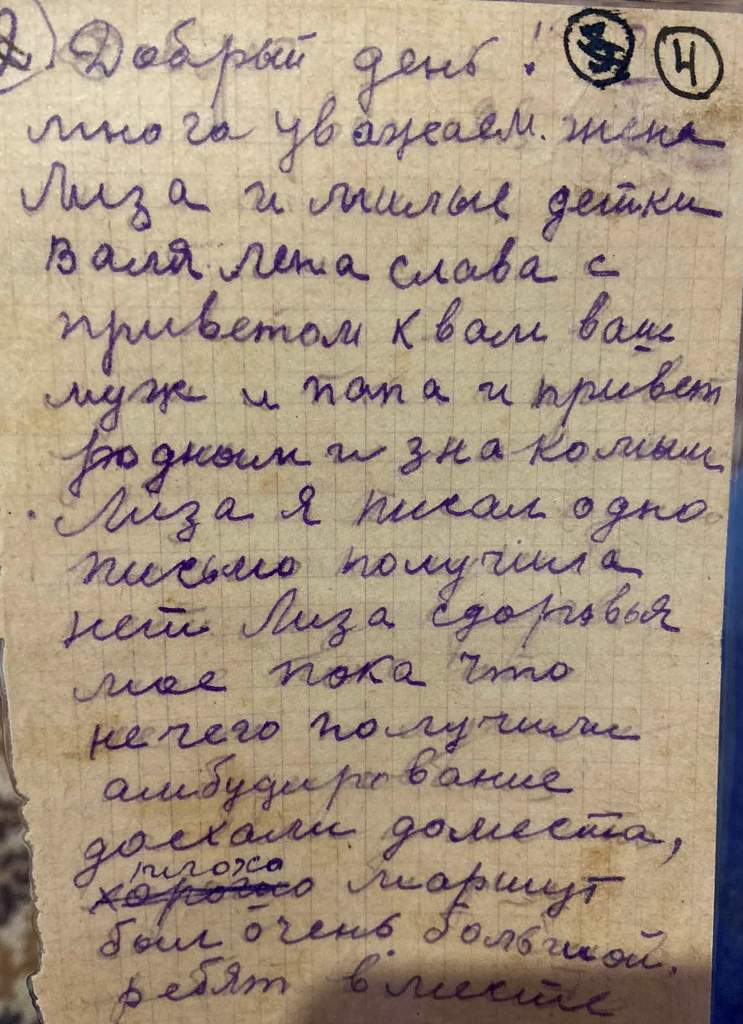 2) Добрый день! 4
много уважаем. жена
Лиза и милые детки
Валя Лена слава с
приветом к вам ваш
муж и папа и привет
родным и знакомым
Лиза я писал одно
письмо получила
нет Лиза сдоровья
мое пока что
нечего получили
амбудирование
доехали доместа,
плохо
хорошо маршут
был очень большой.
ребят вместе